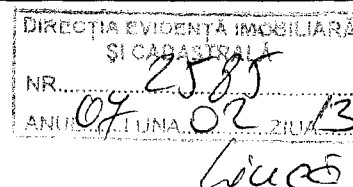 DIRECȚIA EVIDENȚĂ IMOBILIARĂ
ȘI CADASTRALĂ
NR. 2585
ANUL 07 LUNA 02 ZIUA 13